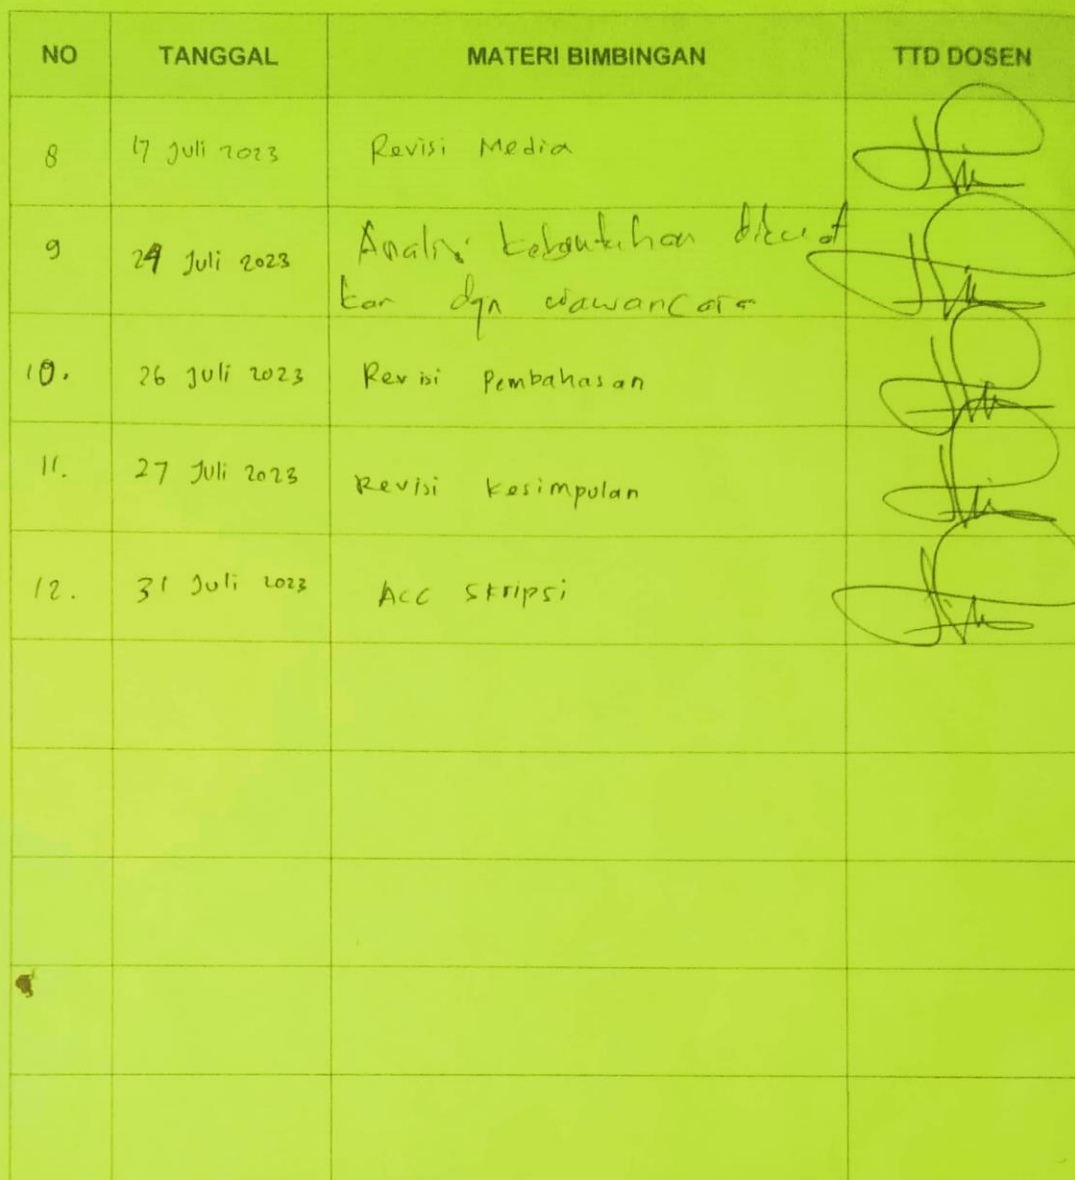 NO TANGGAL MATERI BIMBINGAN TTD DOSEN
8 17 Juli 2023 Revisi Media
9 24 Juli 2023 Analisi kebutuhan
kan dgn wawancara
10. 26 Juli 2023 Revisi Pembahasan
11. 27 Juli 2023 Revisi Kesimpulan
12. 31 Juli 2023 Acc Skripsi